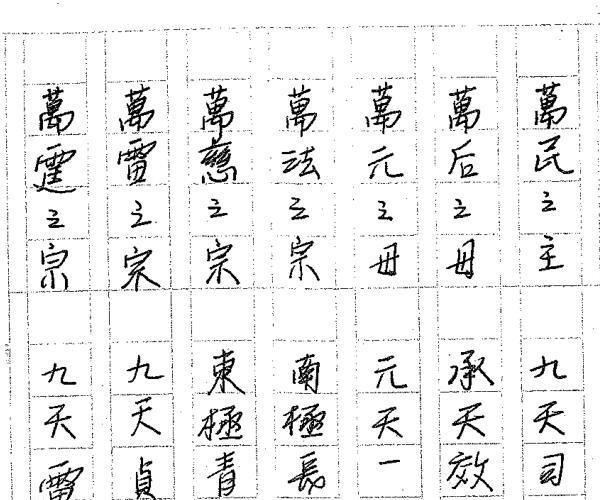 萬民之主
萬后之母
萬元之母
萬法之宗
萬慈之宗
萬雷之宗
萬霆之宗
九天司
承天效
元天一
南極長
東極青
九天貞
九天雷